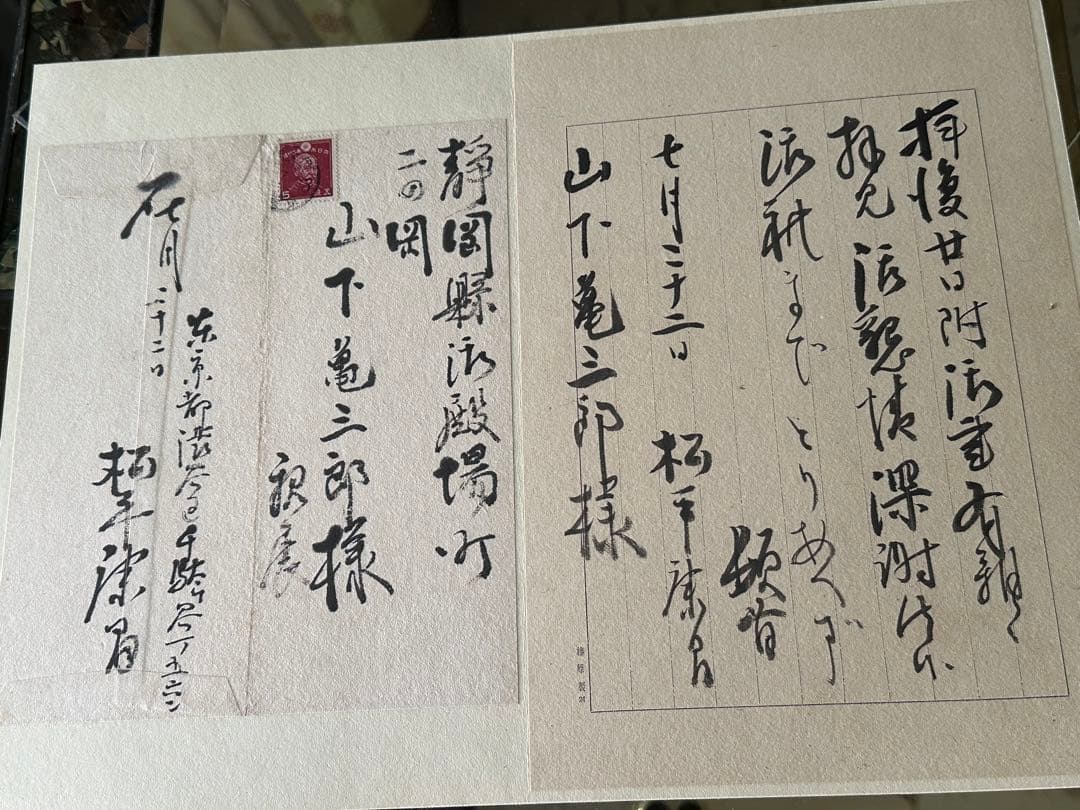 拝復廿日附御書有難く
拝見御懇情深謝仕候
御礼までとりあへず
頓首
七月二十二日
松平康昌
山下亀三郎様
榛原製
静岡縣御殿場町
二の岡
山下亀三郎様
親展
5
七月二十二日
東京都渋谷区千駄ケ谷一ノ五六二
松平康昌